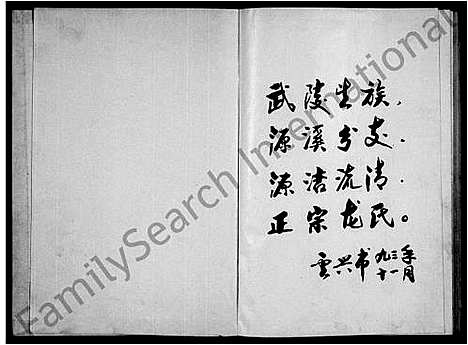 武陵生族，
源溪分支．
源洁流清．
正宗龙氏。
云兴书 九三年十一月
FamilySearch International